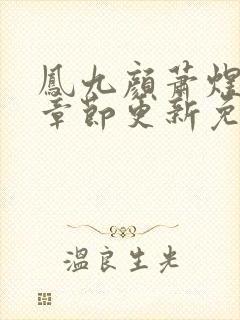 鳳九顏蕭煌
章節更新免
溫良生光